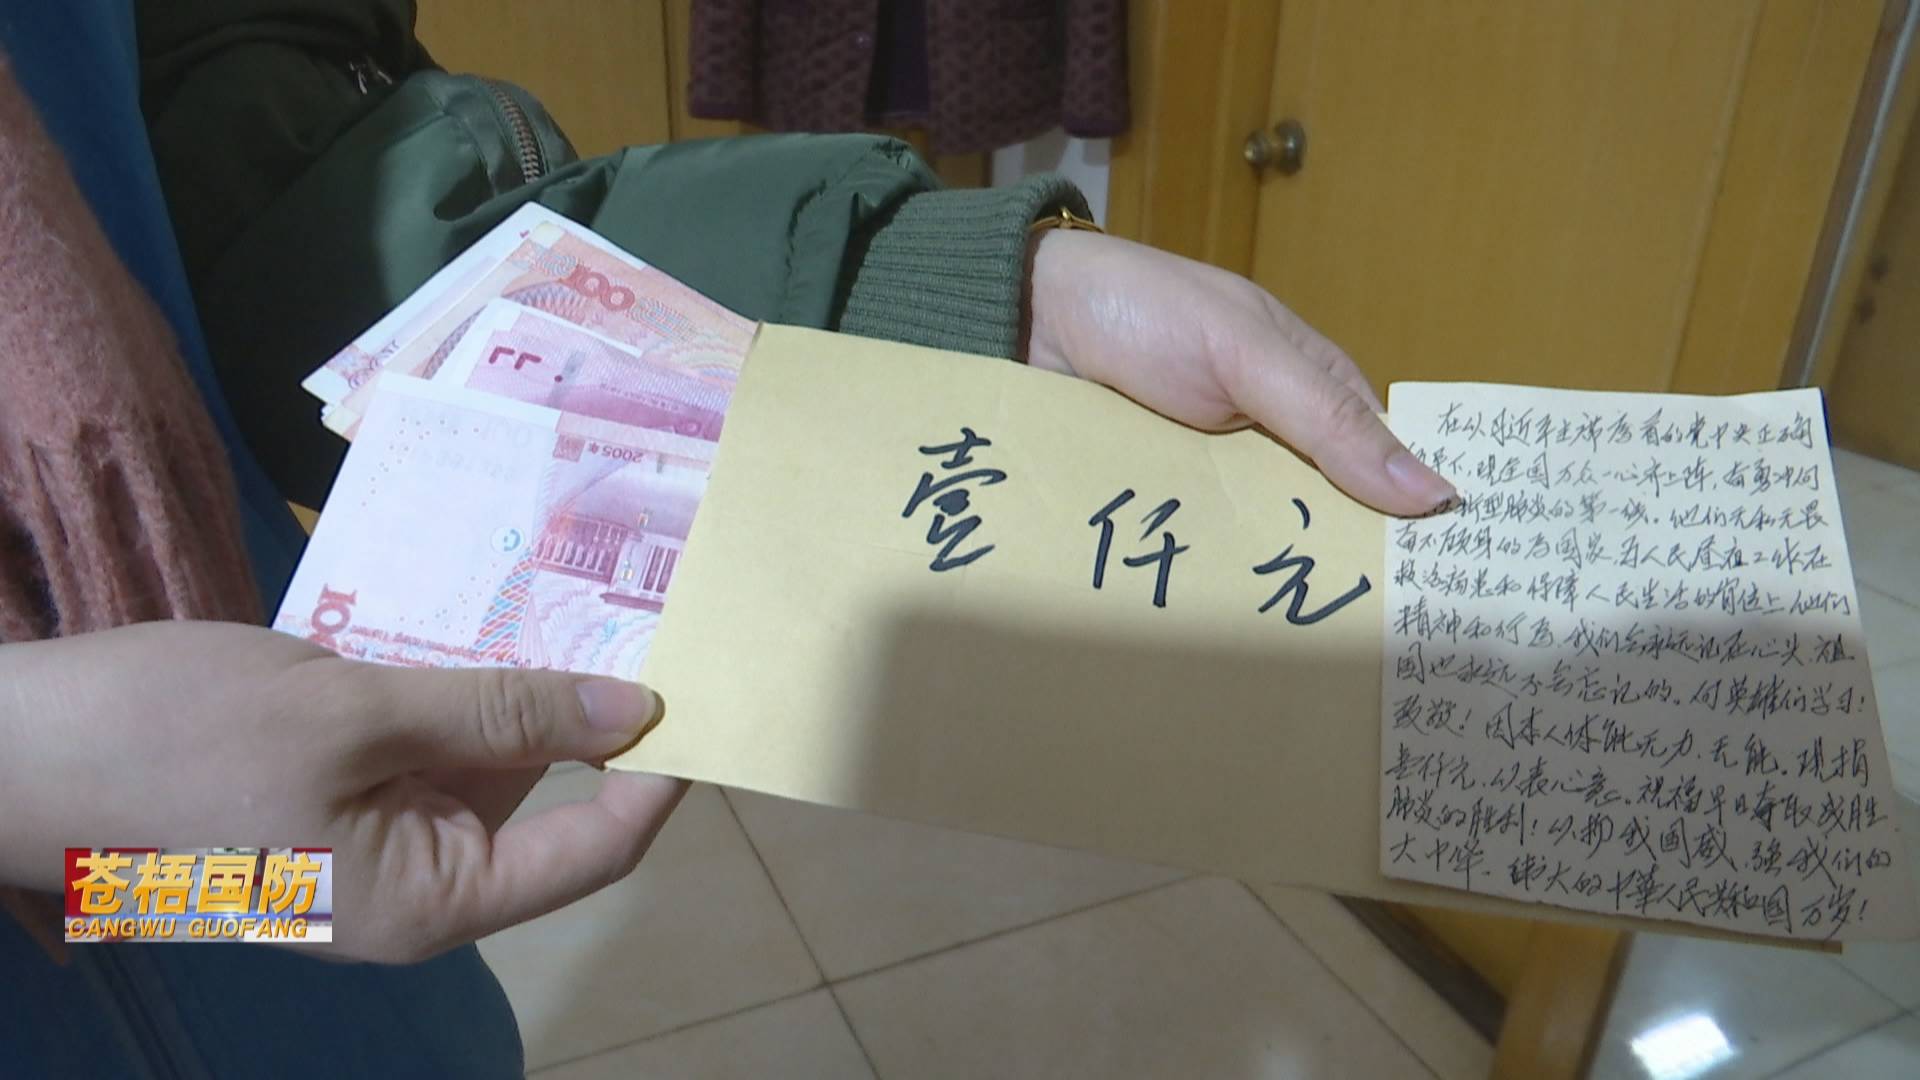 100
100
2005年
壹仟元
在以习近平主席为首的党中央正确
下,现全国万众一心齐上阵,奋勇冲向
新型肺炎的第一线。他们无私无畏
奋不顾身的为国家、为人民昼夜工作在
救治病患和保障人民生活的岗位上他们
精神和行为,我们会永远记在心头,祖
国也永远不会忘记的。向英雄们学习!
致敬!因本人体能无力、无能。现捐
壹仟元,以表心意。祝福早日夺取战胜
肺炎的胜利!以扬我国威、强我们的
大中华、伟大的中華人民共和国万岁!
苍梧国防
CANGWU GUOFANG